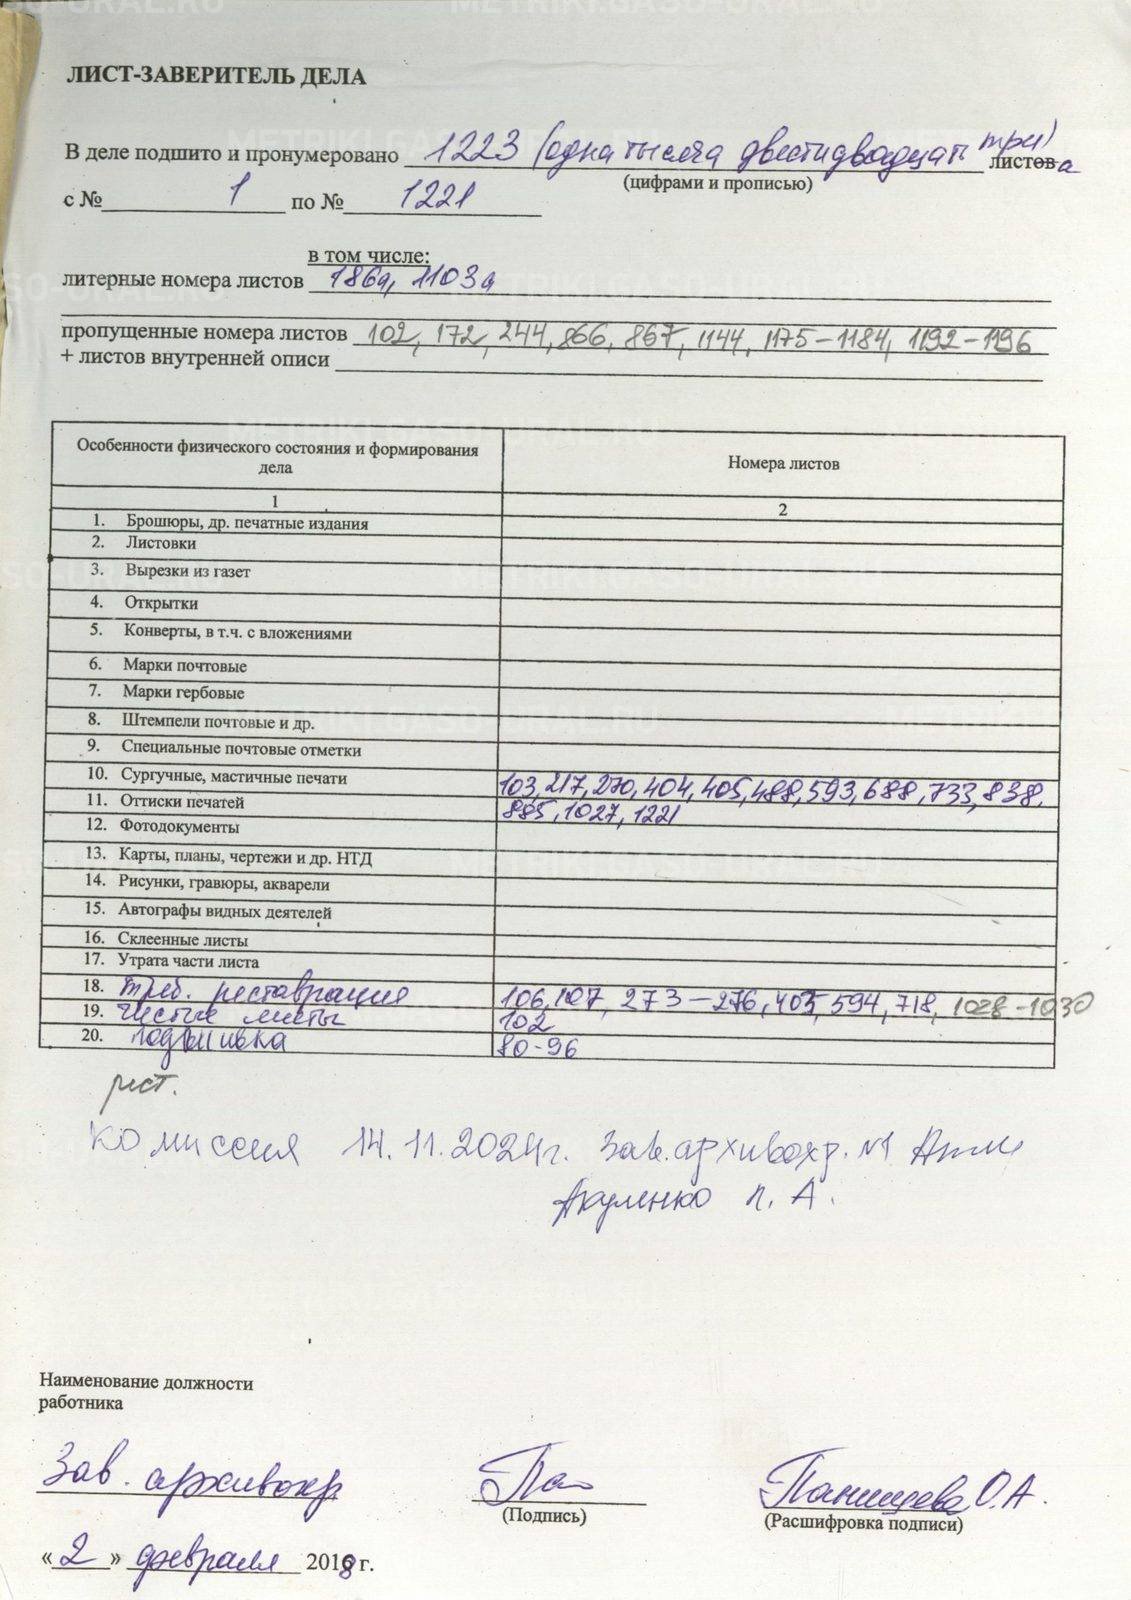 ЛИСТ-ЗАВЕРИТЕЛЬ ДЕЛА
В деле подшито и пронумеровано 1223 (одна тысяча двести двадцать три) листова
(цифрами и прописью)
с № 1 по № 1221
в том числе:
литерные номера листов 186а, 1103а
пропущенные номера листов 102, 172, 244, 866, 867, 1144, 1175-1184, 1192-1196
+ листов внутренней описи
Особенности физического состояния и формирования дела
Номера листов
1
2
1. Брошюры, др. печатные издания
2. Листовки
3. Вырезки из газет
4. Открытки
5. Конверты, в т.ч. с вложениями
6. Марки почтовые
7. Марки гербовые
8. Штемпели почтовые и др.
9. Специальные почтовые отметки
10. Сургучные, мастичные печати 103, 217, 270, 404, 405, 488, 593, 688, 733, 838,
11. Оттиски печатей 885, 1027, 1221
12. Фотодокументы
13. Карты, планы, чертежи и др. НТД
14. Рисунки, гравюры, акварели
15. Автографы видных деятелей
16. Склеенные листы
17. Утрата части листа
18. Треб. реставрация 106, 107, 273-276, 405, 594, 718, 1028-1030
19. Чистые листы 102
20. Подшивка 80-96
рест.
Комиссия 14.11.2024г. Зав. архивохр. №1
Акуленко П. А.
Наименование должности
работника
Зав. архивохр
(Подпись)
Панищева О.А.
(Расшифровка подписи)
«2» февраля 2018 г.
METRIKI.GASO-URAL.RU